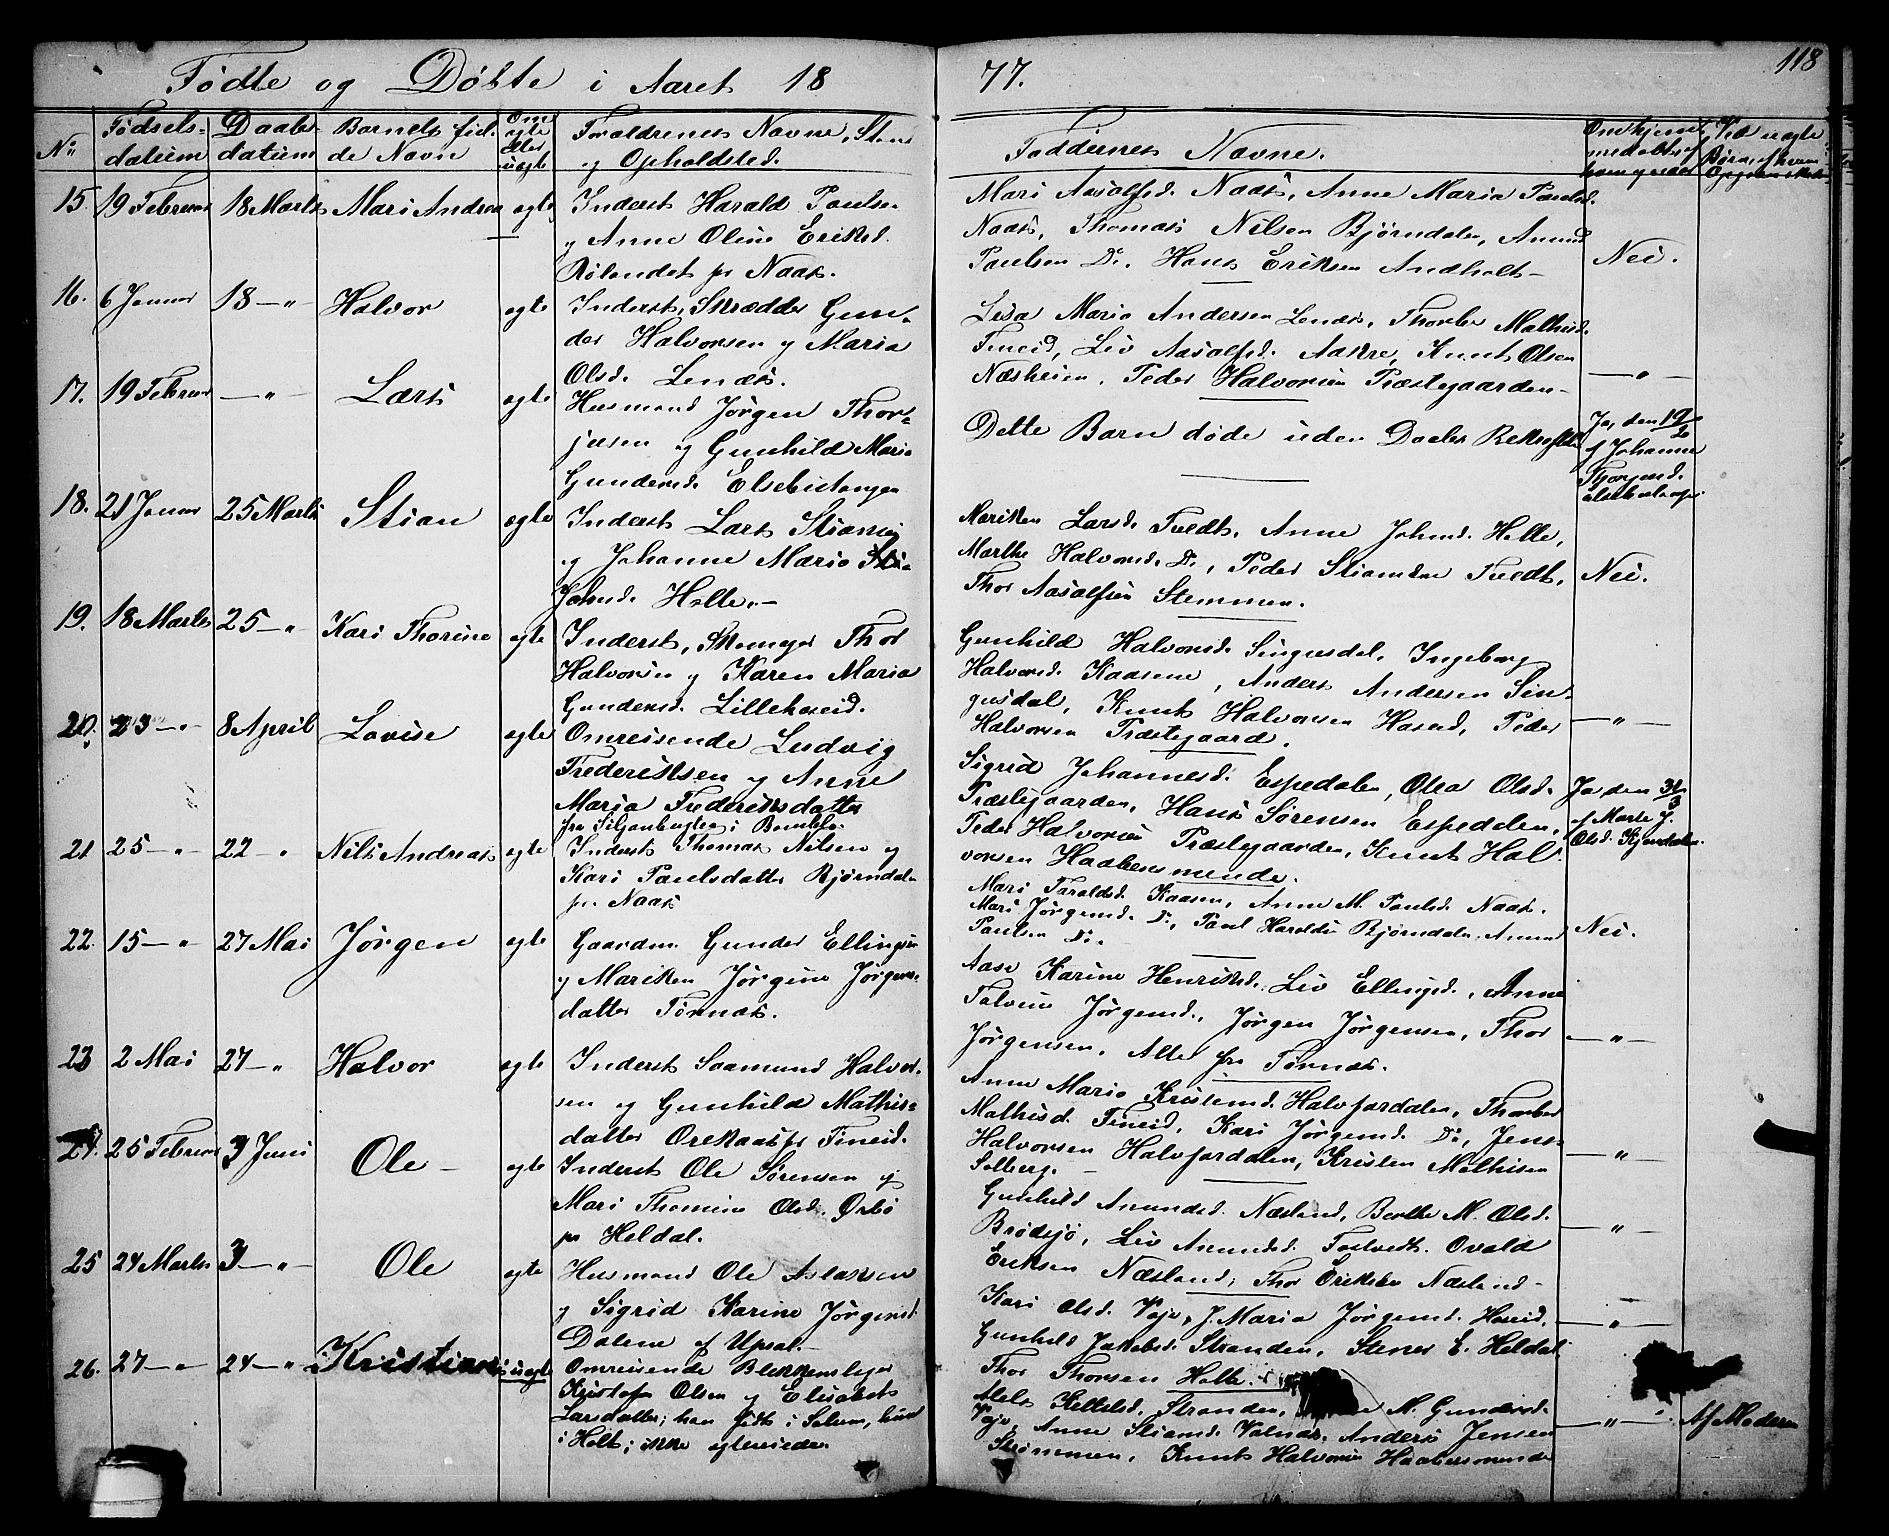 118
Fødte og Döbte i Aaret 1877.
No Fødsels-datum Daabs-datum Barnets fulde Navn Om ægte eller uægte Forældrenes Navne, Stand og Opholdsted. Faddernes Navne.
15. 19 Februar 18 Marts Mari Andrea ægte
Inderst Harald Paulsen
og Anne Oline Eriksd.
Rölandet pr Naas.
Mari Aasolfsd. Naas, Anne Maria Paulsd.
Naas, Thomas Nilsen Bjørndalen, Amund
Paulsen Do. Hans Eriksen Andholt
Nei.
16. 6 Januar 18 — " Halvor ægte
Inderst, Skrædder Gun-
der Halvorsen og Maria
Olsd. Lenæs.
Lisa Maria Andersen Lenæs, Thorber Mathisd.
Fineid, Liv Aasolfsd. Aakre, Knut Olsen
Næsheien, Peder Halvorsen Præstegaarden
— " —
17. 19 Februar — " — Lars ægte
Husmand Jørgen Thor-
jusen og Gunhild Maria
Gundersd. Elsebutangen
Dette Barn døde uden Daabs Bekræftelse
Ja, den 19/2
af Johanne
18. 21 Januar 25 Marts Stian ægte
Inderst Lars Stiansen
og Johanne Maria
Johnsd. Helle.
Mariken Larsd. Tvedt, Anne Johnsd. Helle,
Marthe Halvorsd. Do, Peder Stiansen Tvedt,
Thor Aasolfsen Stemmen.
Nei.
19. 18 Marts 25 — " Kari Thorine ægte
Inderst, Skomager Thor
Halvorsen og Karen Maria
Gundersd. Lillehaveid.
Gunhild Halvorsd. Singusdal, Ingeborg
Halvorsd. Kaasene, Anders Andersen Sin-
gusdal, Knut Halvorsen Haseid, Peder
Halvorsen Præstegaard.
— " —
20. 23 — " 8 April Lovise ægte
Omreisende Ludvig
Frederiksen og Anne
Maria Frederiksdatter
fra i Bamble.
Sigrid Johannesd. Espedalen, Olea Olsd.
Præstegaarden, Hans Sørensen Espedalen,
Peder Halvorsen Præstegaarden, Knut Hal-
vorsen Haabesmende.
Ja, den 31/3
af Marte J.
Olsd.
21 25 — " 22 — " Nils Andreas ægte
Inderst Thomas Nilsen og
Kari Paulsdatter Bjørndalen
pr. Naas
Mari Taraldsd. Kaasen, Anne M. Paulsd. Naas.
Mari Jørgensd. Do, Paul Haraldsen Bjørndalen, Amund
Paulsen Do.
Nei.
22. 15 — " 27 Mai Jørgen ægte
Gaardm. Gunder Ellingsen
og Mariken Jørgine Jørgens-
datter Tørnæs.
Aase Karine Henriksd., Liv Ellingsd., Anne
Jørgensd., Jørgen Jørgensen, Thor
Jørgensen. Alle fra Tørnæs.
— " —
23 2 Mai 27 — " Halvor ægte
Inderst Saamund Halvor-
sen og Gunhild Mathis-
datter Orekaas pr Fineid.
Anne Maria Kristensd. Halvfardalen, Thorber
Mathisd. Fineid, Kari Jørgensd. Do, Jens
Halvorsen Halvfardalen, Kristen Mathisen
Solberg.
— " —
24. 25 Februar 3 Juni Ole ægte
Inderst Ole Sørensen og
Mari Thomine Olsd. Ørbö
pr Heldal.
Gunhild Amundsd. Næsland, Berthe M. Olsd.
Brødsjö, Liv Amundsd. Tostvedt. Ovald
Eriksen Næsland, Thor Eriksen Næsland
— " —
25 24 Marts 3 — " Ole ægte
Husmand Ole Aslaksen
og Sigrid Karine Jørgensd.
Dalene af Upsal.
Kari Olsd. Vaje, J. Maria Jørgensd. Haseid,
Gunhild Jakobsd. Stranden, Stener E. Heldal,
Thor Thorsen Helle.
— " —
26. 27 — " 24 — " Kristian uægte
Omreisende Blikkenslager
Kristofer Olsen og Elisabet
Larsdatter; han født i Solum, hun
i Holt; ikke ægteviede.
Kittelsd. Stranden, N. Gundersd.
Vaje, Anne Stiansd. Valnæs, Anders Jensen
Strømmen, Knut Halvorsen Haabesmende
— " — Af Moderen